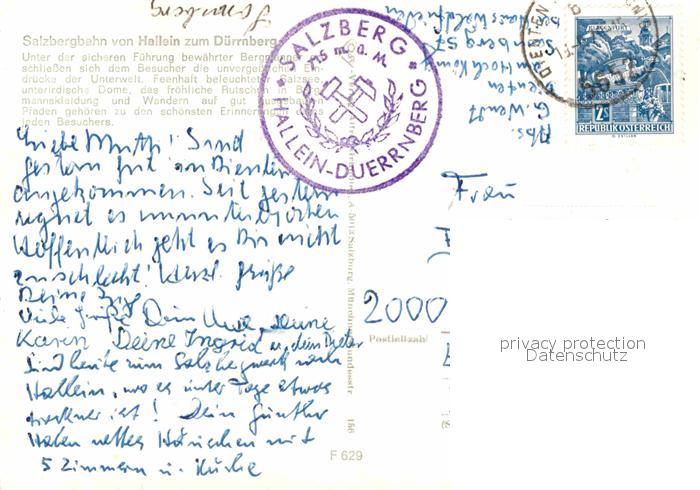 Salzbergbahn von Hallein zum Dürrnberg
Unter der sicheren Führung bewährter Berg
schließen sich dem Besucher die unvergeßlichen Ein-
drücke der Unterwelt. Feenhaft beleuchteter Salzsee,
unterirdische Dome, das fröhliche Rutschen in Berg-
mannskleidung und Wandern auf gut
Pfaden gehören zu den schönsten Erinnerungen
jeden Besuchers.
SALZBERG
HALLEIN-DUERRNBERG
Liebe Mutti! Sind
gestern gut in Dienten
angekommen. Seit gestern
regnet es ununterbrochen
Hoffentlich geht es Dir nicht
zu schlecht! Herzl. Grüße
Deine
Viele Grüße Dein Uwe, Deine
Karen Deine Ingrid u. dein Peter
Sind heute zum Salzbergwerk nach
Hallein, wo es unter Tage etwas
trockner ist! Dein Günther
Haben nettes Häuschen mit
5 Zimmern u. Küche
Abs.
G. Wendt
Dienten
Frau
2000
Postleitzahl
156
F 629
2S
REPUBLIK ÖSTERREICH
privacy protection
Datenschutz